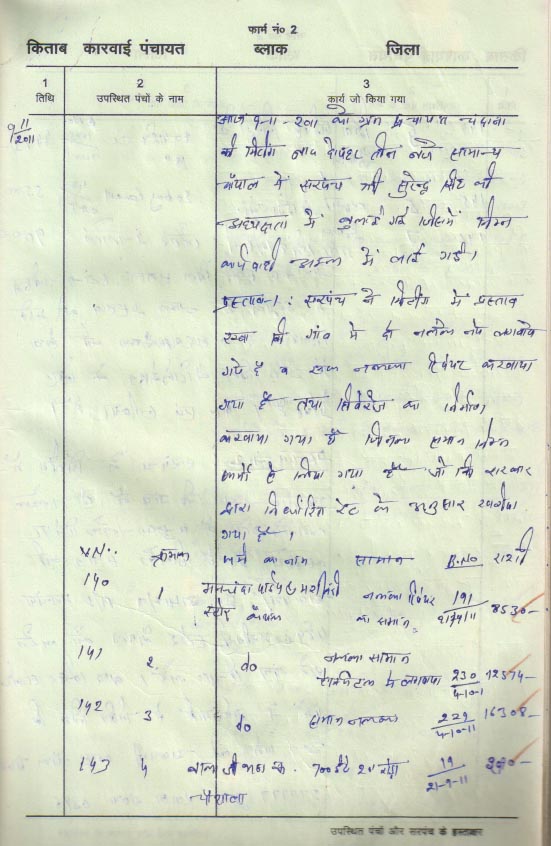 फार्म नं० 2
किताब कारवाई पंचायत ब्लाक जिला
1 2 3
तिथि उपस्थित पंचों के नाम कार्य जो किया गया
9/11/2011 आज 9-11-2011 को ग्राम पंचायत
की मिटिंग बाद दोपहर तीन बजे सामान्य
चौपाल में सरपंच श्री सुरेन्द्र सिंह की
अध्यक्षता में बुलाई गई जिसमें निम्न
कार्यवाही अमल में लाई गई।
प्रस्ताव-1: सरपंच ने मिटींग में प्रस्ताव
रखा कि गांव में दो नलके नये लगवाये
गये हैं व एक नलका रिपेयर करवाया
गया है तथा सिवरेज का निर्माण
करवाया गया है जिनका समान निम्न
फर्मो से लिया गया है जो कि सरकार
द्वारा निर्धारित रेट के अनुसार खरीदा
गया है।
V.N. क्रमांक फर्म का नाम सामान B.No राशी
140 1 मशीनरी नलका रिपेयर 191 8530-
स्टोर कैथल का समान
141 2 do नलका सामान
230/4-10-1 12574-
142 3 do सामान नलका 229/4-10-11 16308-
143 4 700 ईंटे 19/21-9-11
उपस्थित पंचों और सरपंच के हस्ताक्षर